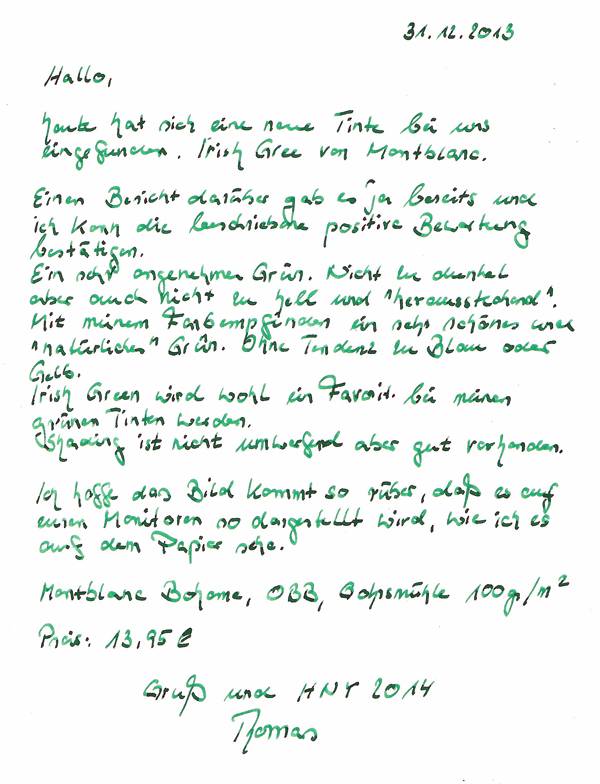 31.12.2013
Hallo,
heute hat sich eine neue Tinte bei uns
eingefunden. Irish Gree von Montblanc.
Einen Bericht darüber gab es ja bereits und
ich kann die beschriebene positive Bewertung
bestätigen.
Ein sehr angenehmer Grün. Nicht zu dunkel
aber auch nicht zu hell und "herausstechend".
Mit meinem Farbempfinden ein sehr schönes und
"natürliches" Grün. Ohne Tendenz zu Blau oder
Gelb.
Irish Green wird wohl ein Favorit bei meinen
grünen Tinten werden.
Shading ist nicht umwerfend aber gut vorhanden.
Ich hoffe das Bild kommt so rüber, daß es auf
euren Monitoren so dargestellt wird, wie ich es
auf dem Papier sehe.
Montblanc Boheme, OBB, Gohrsmühle 100gr/m²
Preis: 13,95 €
Gruß und HNY 2014
Thomas